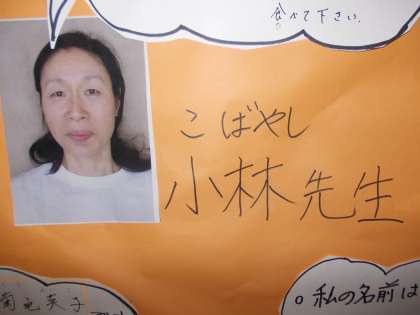 食べて下さい。
こばやし
小林先生
私の名前は